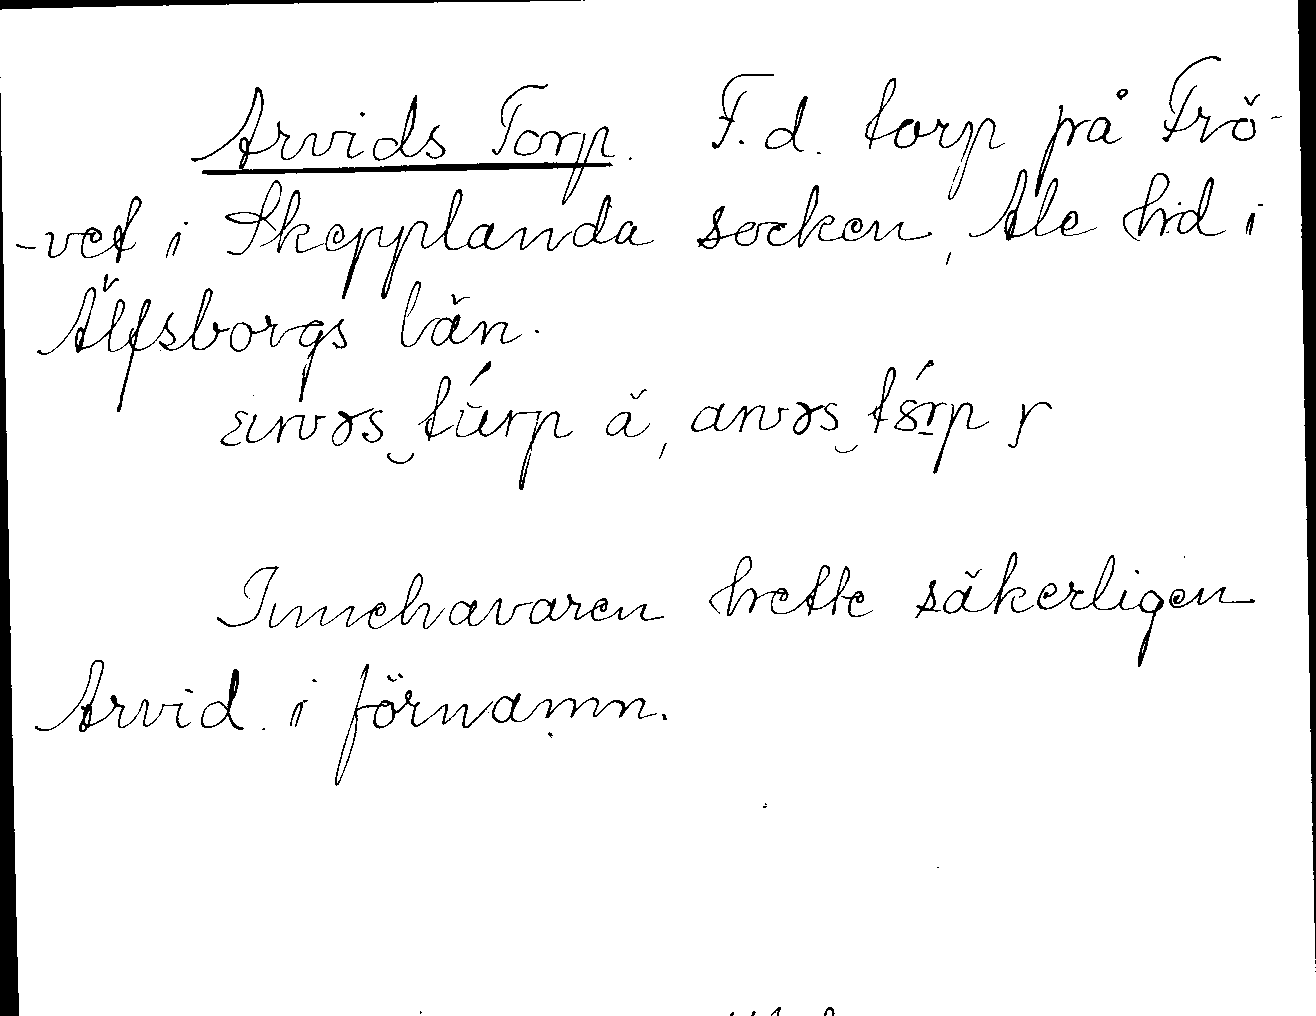 Arvids Torp. F.d. torp på Frö-
-vet i Skepplanda socken, Ale hd i
Älfsborgs län.
arvəs‿túrp ä, arvəs‿tórp
Innehavaren hette säkerligen
Arvid i förnamn.